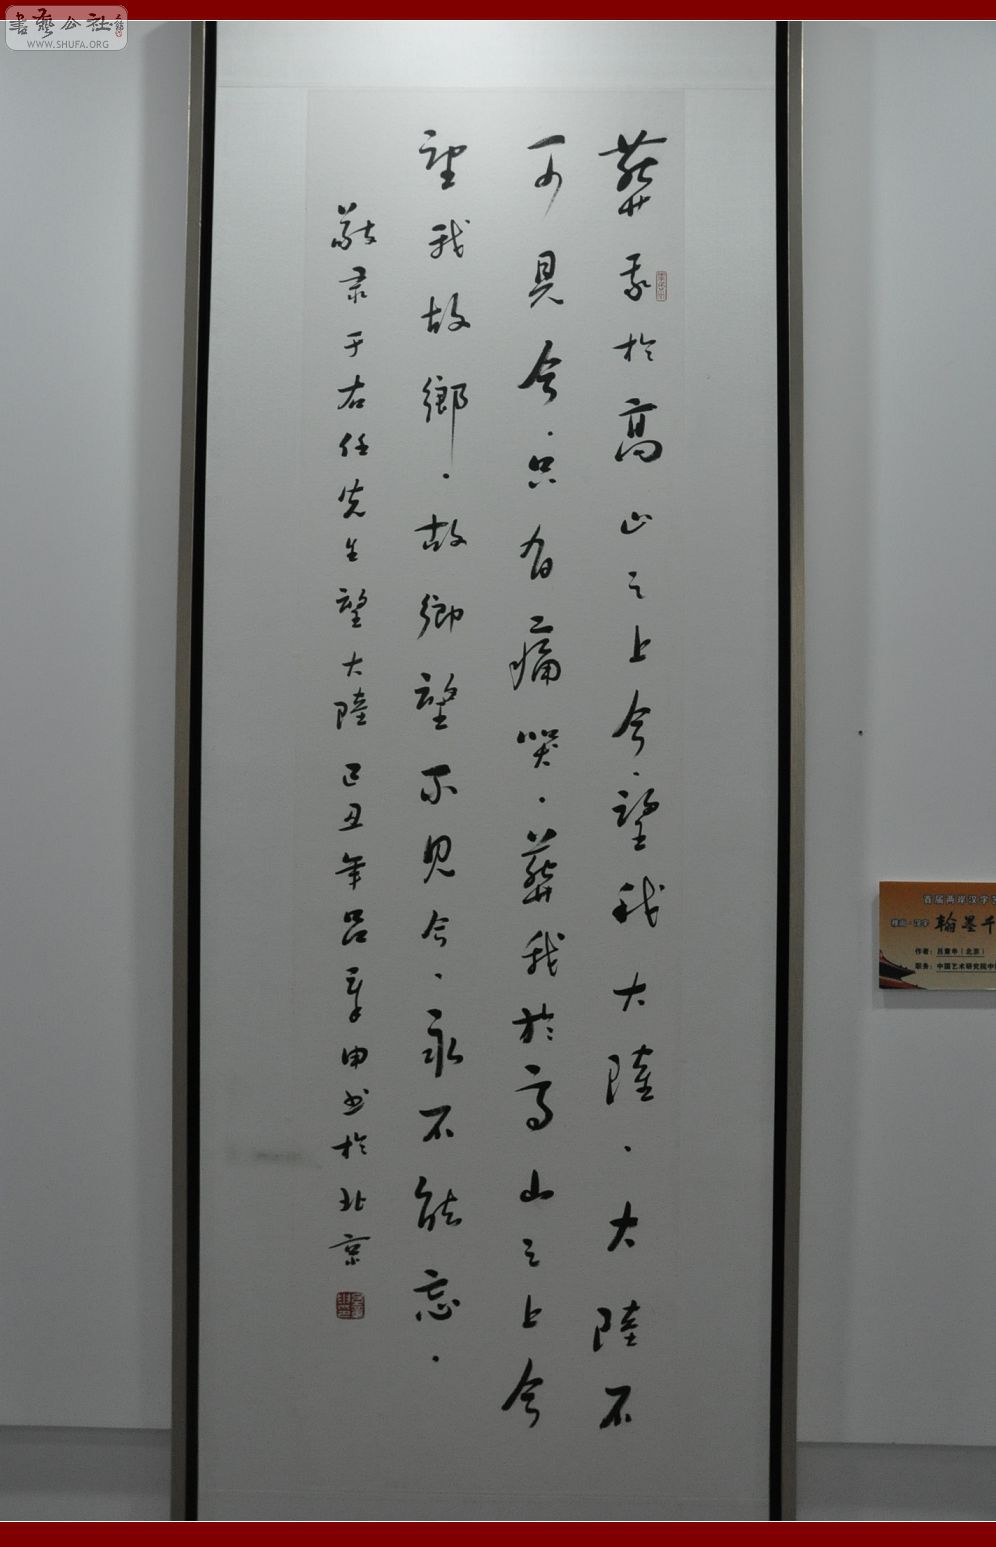 葬我於高山之上今．望我大陸．大陸不
可見今．只有痛哭．葬我於高山之上今
望我故鄉．故鄉望不見今．永不能忘．
敬录于右任先生望大陸 己丑年吕章申书於北京
書藝公社
WWW.SHUFA.ORG
首届两岸汉字艺
翰墨千
作者：吕章申（北京）
职务：中国艺术研究院中国